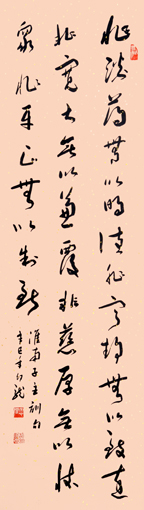 非淡薄無以明德非寧靜無以致遠
非寬大無以兼覆非慈厚無以懷
眾非平正無以制斷
淮南子主術句
辛巳